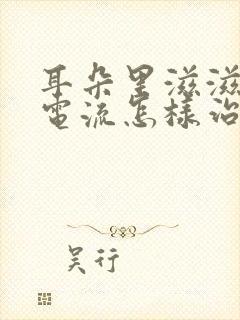 耳朵里滋滋
電流怎樣治
吴行